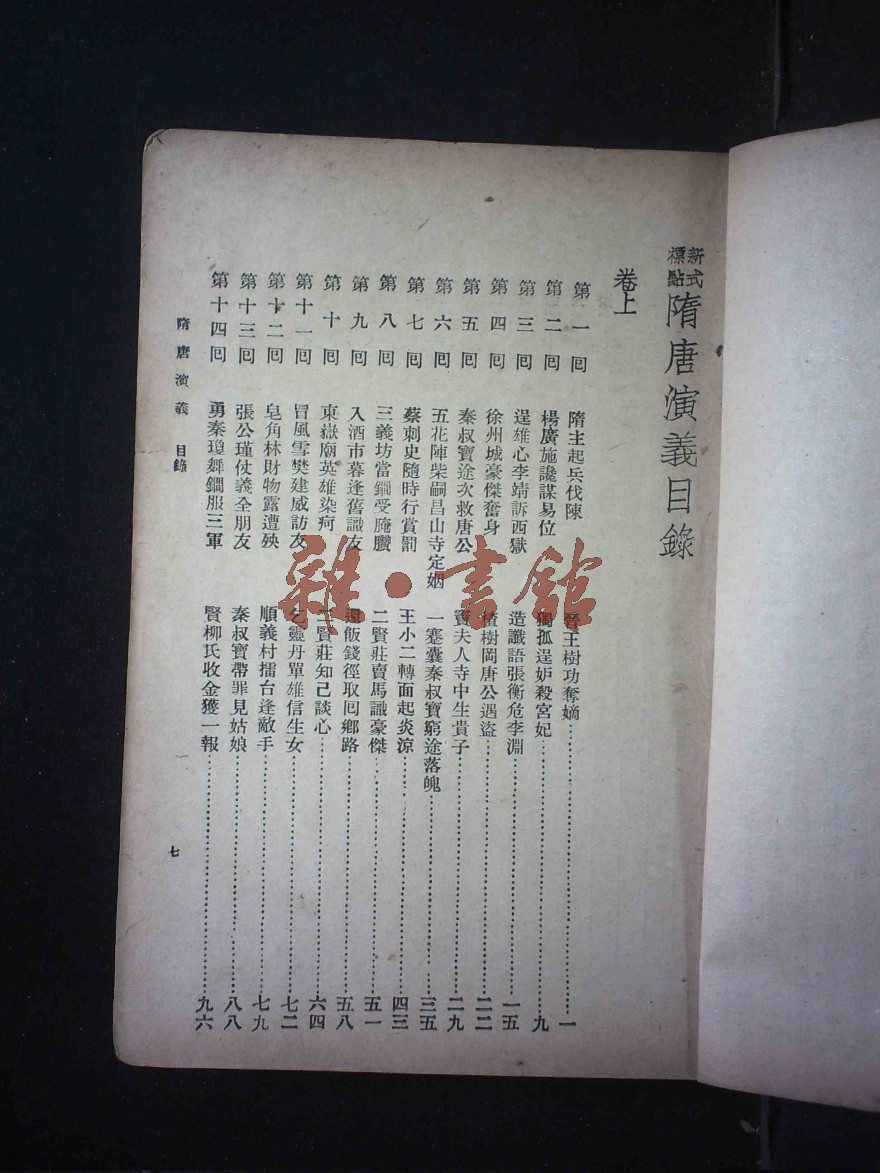 新式標點隋唐演義目錄
卷上
第一回 隋主起兵伐陳 晉王樹功奪嫡 一
第二回 楊廣施讒謀易位 獨孤逞妒殺宮妃 九
第三回 逞雄心李靖訴西嶽 造讖語張衡危李淵 一五
第四回 徐州城豪傑奮身 楂樹岡唐公遇盜 二二
第五回 秦叔寶途次救唐公 竇夫人寺中生貴子 二九
第六回 五花陣柴嗣昌山寺定姻 一蹇囊秦叔寶窮途落魄 三五
第七回 蔡刺史隨時行賞罰 王小二轉面起炎涼 四三
第八回 三義坊當鐧受腌臢 二賢莊賣馬識豪傑 五一
第九回 入酒市暮逢舊識友 還飯錢徑取回鄉路 五八
第十回 東嶽廟英雄染疴 二賢莊知己談心 六四
第十一回 冒風雪樊建威訪友 乞靈丹單雄信生女 七二
第十二回 皂角林財物露遭殃 順義村擂台逢敵手 七九
第十三回 張公瑾仗義全朋友 秦叔寶帶罪見姑娘 八八
第十四回 勇秦瓊舞鐧服三軍 賢柳氏收金獲一報 九六
隋唐演義 目錄
七
雜·書館